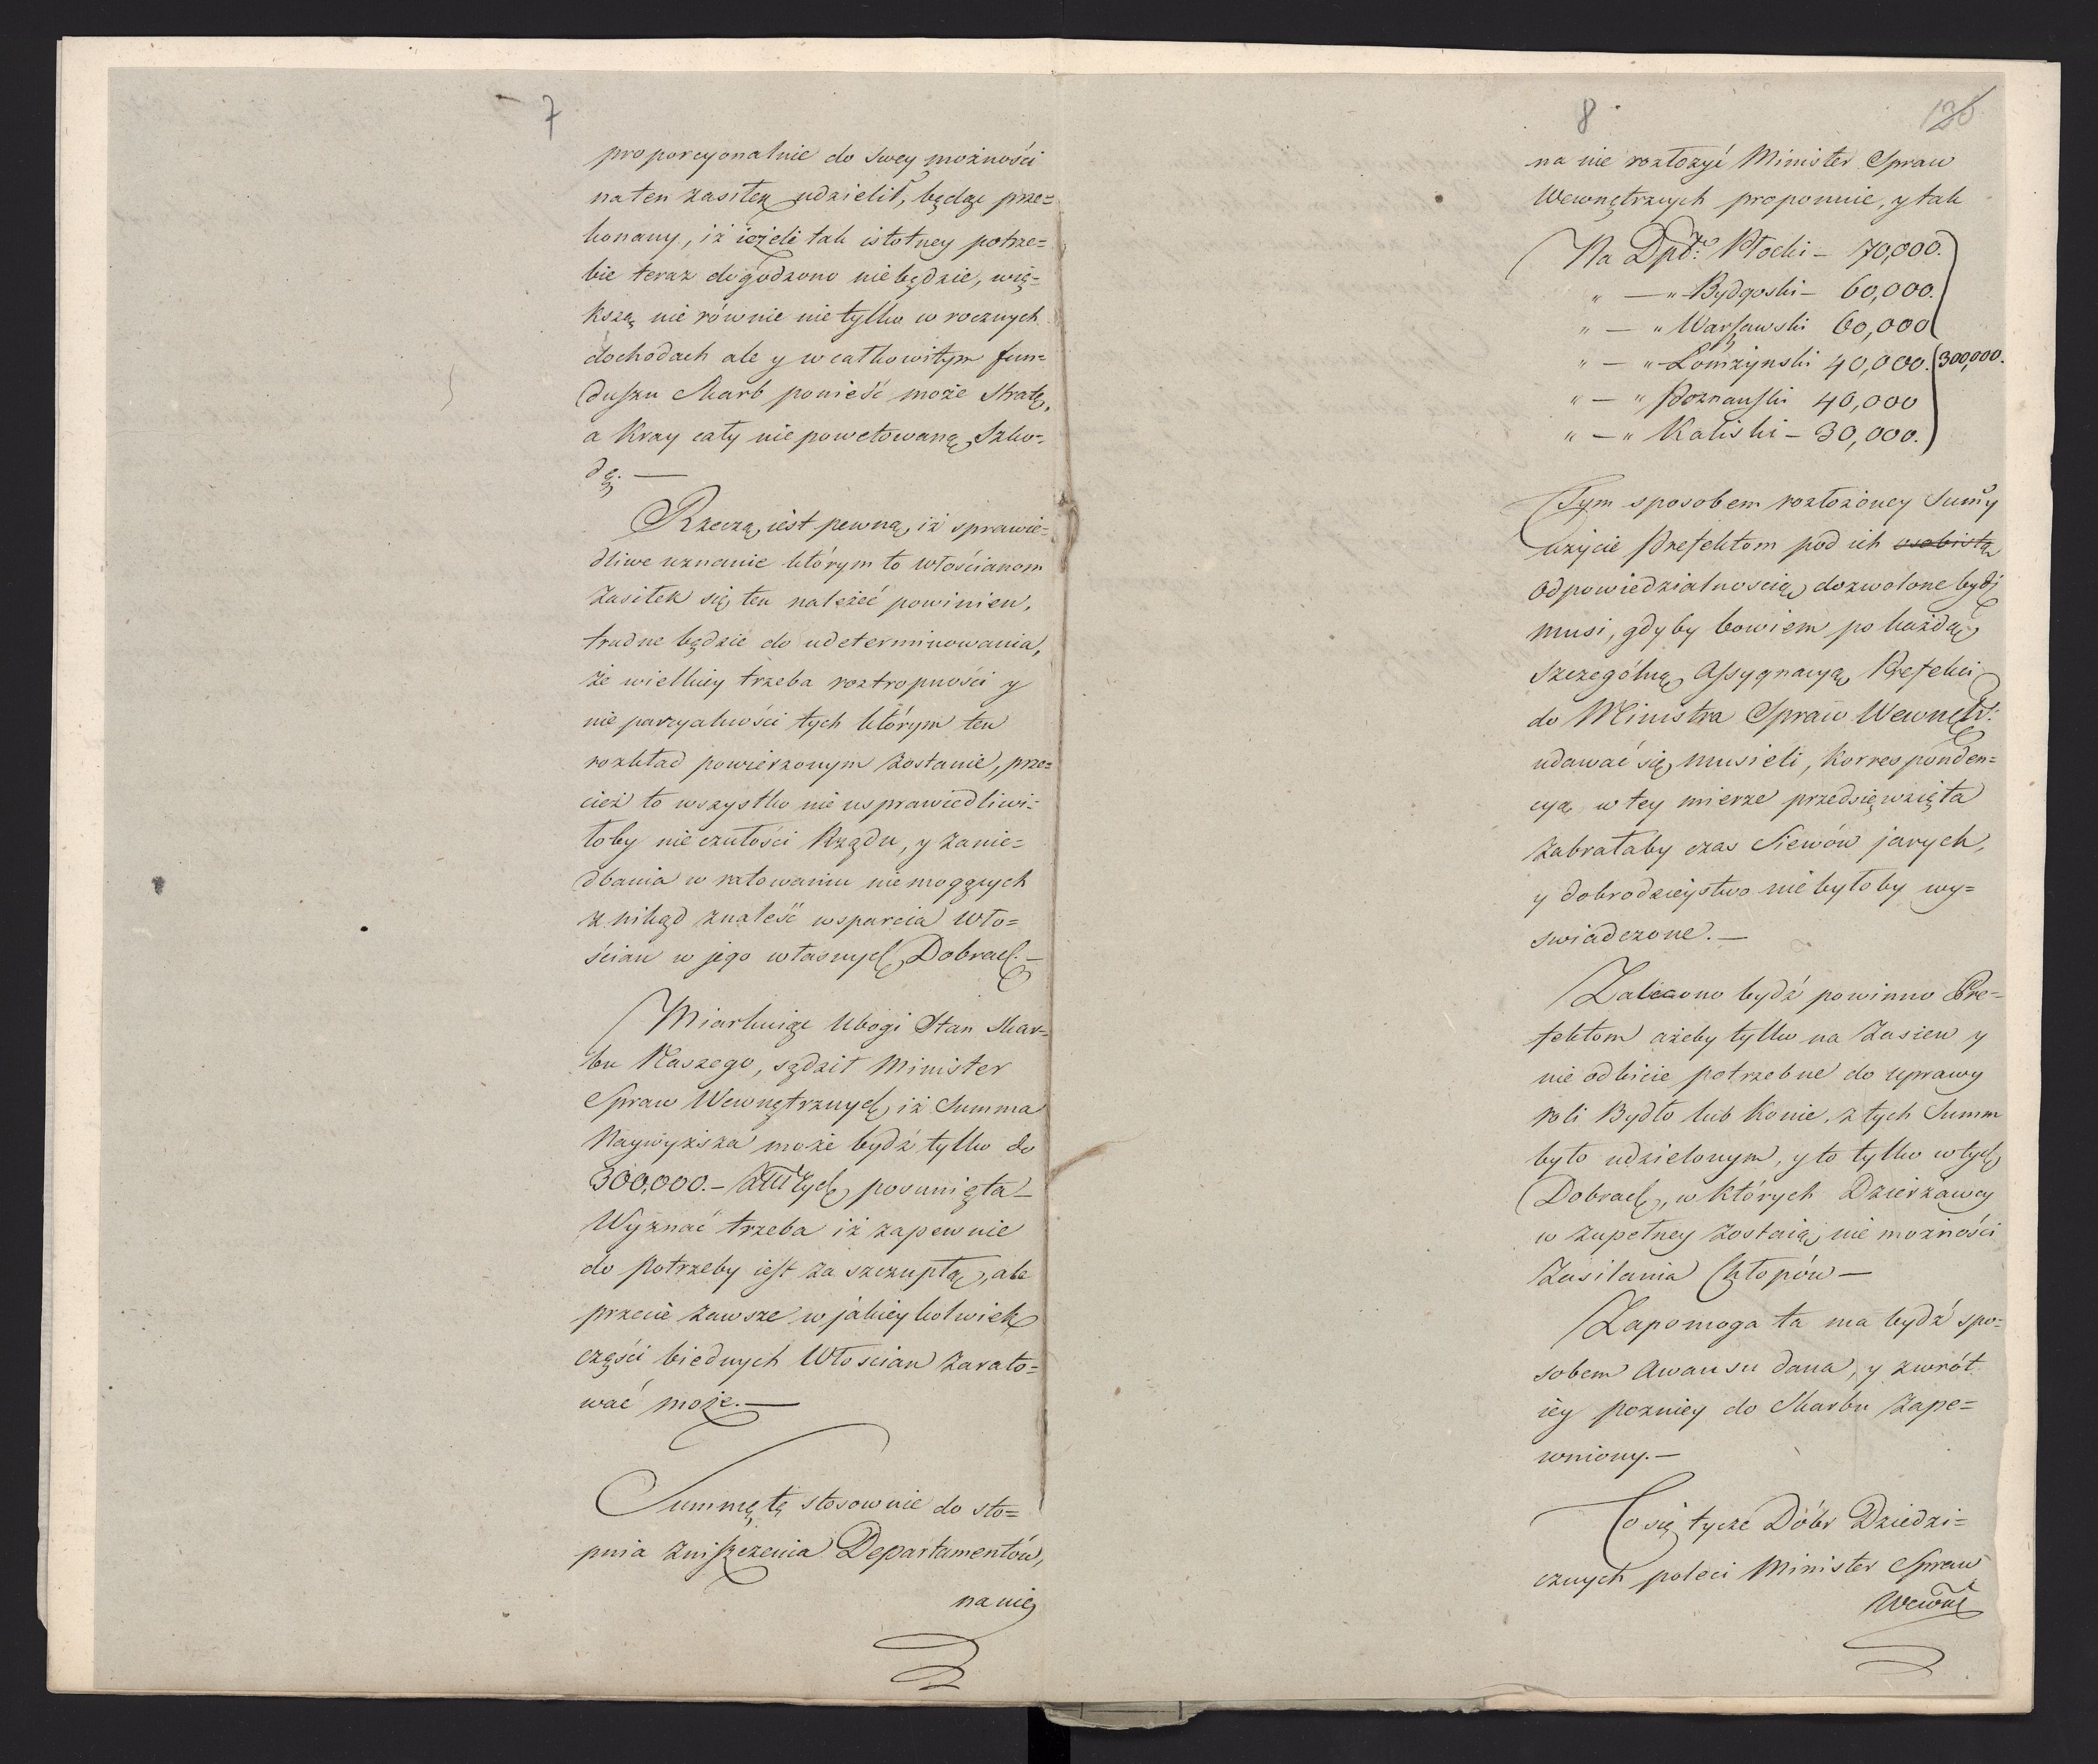 7
proporcyonalnie do swey możności
na ten zasiłek udzielił, będąc prze=
konany, iż ieżeli tak istotney potrze=
bie teraz dogodzono nie będzie, wię=
kszą nie równie nie tylko w rocznych
dochodach ale y w całkowitym fun=
duszu Skarb ponieść może stratę,
a Kray cały nie powetowaną Szko=
dę. —
Rzeczą iest pewną, iż sprawie=
dliwe uznanie którym to włościanom
Zasiłek się ten należeć powinien,
trudne będzie do udeterminowania,
że wielkiey trzeba roztropności y
nie parcyalności tych którym ten
rozkład powierzonym zostanie, prze=
cież to wszystko nie usprawiedliwi=
łoby nie czułości Rządu, y zanie=
dbania w ratowaniu nie mogących
z nikąd znaleść wsparcia Wło=
ścian w jego własnych Dobrach. —
Miarkuiąc Ubogi Stan Skar=
bu Naszego, sądził Minister
Spraw Wewnętrznych iż Summa
Naywyższa może bydź tylko do
300,000.– złłtych posunięta —
Wyznać trzeba iż zapewnie
do potrzeby iest za szczupłą, ale
przecie zawsze w jakieykolwiek
części biednych Włoscian zarato=
wać może. —
Summę tę stosownie do sto=
pnia zniszczenia Departamentów,
na nie
8
136
na nie rozłożyć Minister Spraw
Wewnętrznych proponuie, y tak
Na Dpdt: Płocki – 70,000.
" — " Bydgoski – 60,000.
" — " Warszawski 60,000
" — " Łomżynski 40,000. 300,000.
" — " Poznanski 40,000
" — " Kaliski – 30,000.
Tym sposobem rozłożoney Sumy
użycie Prefektom pod ich osobistą
odpowiedzialnoscią dozwolone bydź
musi, gdyby bowiem po każdą
szczególną Assygnacyą Prefekci
do Ministra Spraw Wewnętr:
udawać się musieli, Korresponden=
cyą w tey mierze przedsięwzięta
zabrałaby czas Siewów jarych,
y dobrodzieystwo nie byłoby wy=
swiadczone. —
Zalecono bydź powinno Pre=
fektom ażeby tylko na Zasiew y
nie odbicie potrzebne do uprawy
roli Bydło lub Konie, z tych Summ
było udzielonym, y to tylko w tych
Dobrach, w których Dzierzawcy
w zupełney zostaią nie możności
Zasilania Chłopów —
Zapomoga ta ma bydź spo=
sobem Awansu dana, y zwrót
iey pozniey do Skarbu zape=
wniony. —
Co się tycze Dóbr Dziedzi=
cznych poleci Minister Spraw
Wewnę